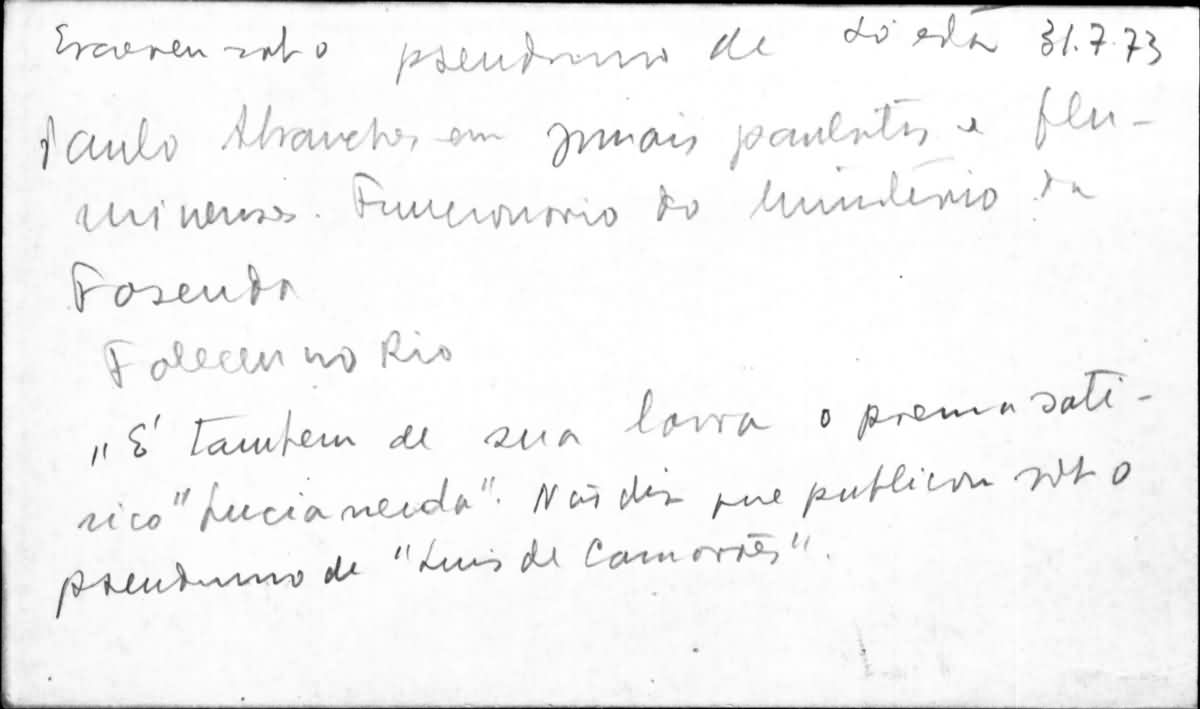 Escreveu sob o pseudonimo de Só está 31.7.73
Paulo Abranches em jornais paulistas e flu-
minenses. Funcionario do Ministério da
Fazenda
Faleceu no Rio
"É tambem de sua lavra o poema sati-
rico "Lucianeida". Não diz que publicou sob o
pseudonimo de "Luis de Camorões".